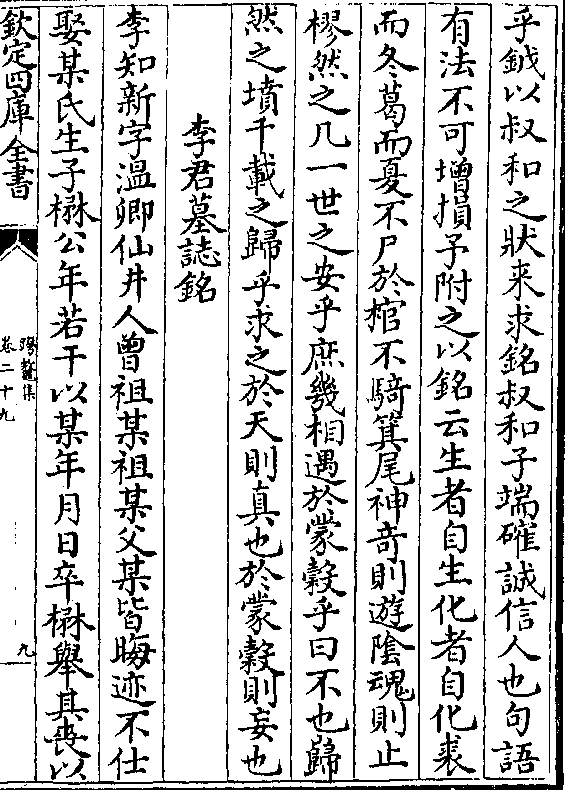 乎鉞以叔和之狀来求銘叔和子端確誠信人也句語
有法不可增損予附之以銘云生者自生化者自化裘
而冬葛而夏不尸於棺不騎箕尾神奇則遊陰魂則止
樛然之几一世之安乎庶幾相遇於蒙縠乎曰不也歸
然之墳千載之歸乎求之於天則真也於蒙縠則妄也
李君墓誌銘
李知新字温卿仙井人曾祖某祖某父某皆晦迹不仕
娶某氏生子楙公年若干以某年月日卒楙舉其喪以
欽定四庫全書
卷二十九
九